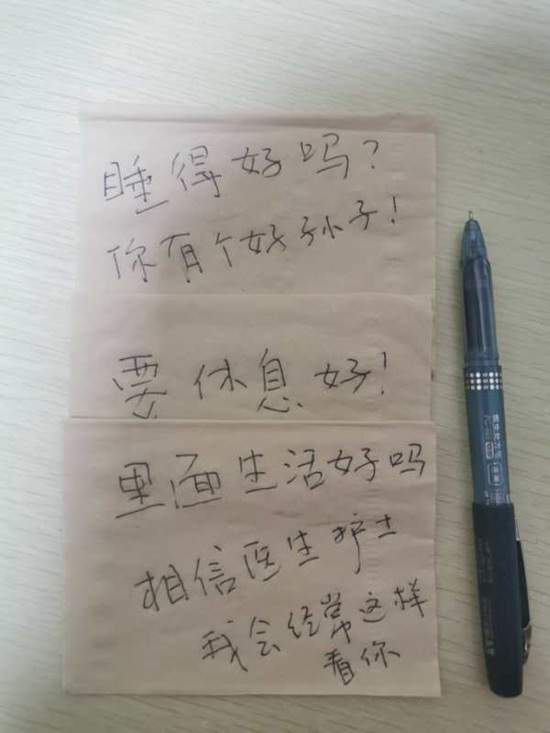 睡得好吗?
你有个好孙子!
要休息好!
里面生活好吗
相信医生护士
我会经常这样
看你